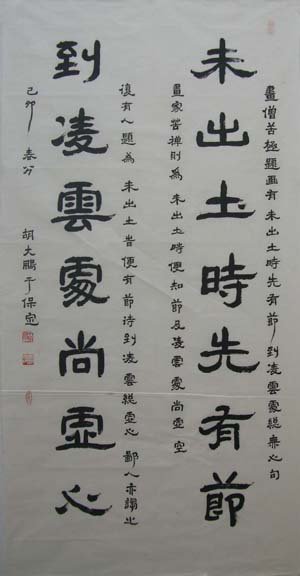 畫僧苦極題画有 未出土時先有節 到凌雲處總無心句
未出土時先有節
畫家苦禅則為 未出土時便知節 及凌雲處尚虛空
復有人題為 未出土旹便有節 待到凌雲總虛心 鄙人亦謅之
到凌雲處尚虛心
己卯 春分 胡大鵬于保定